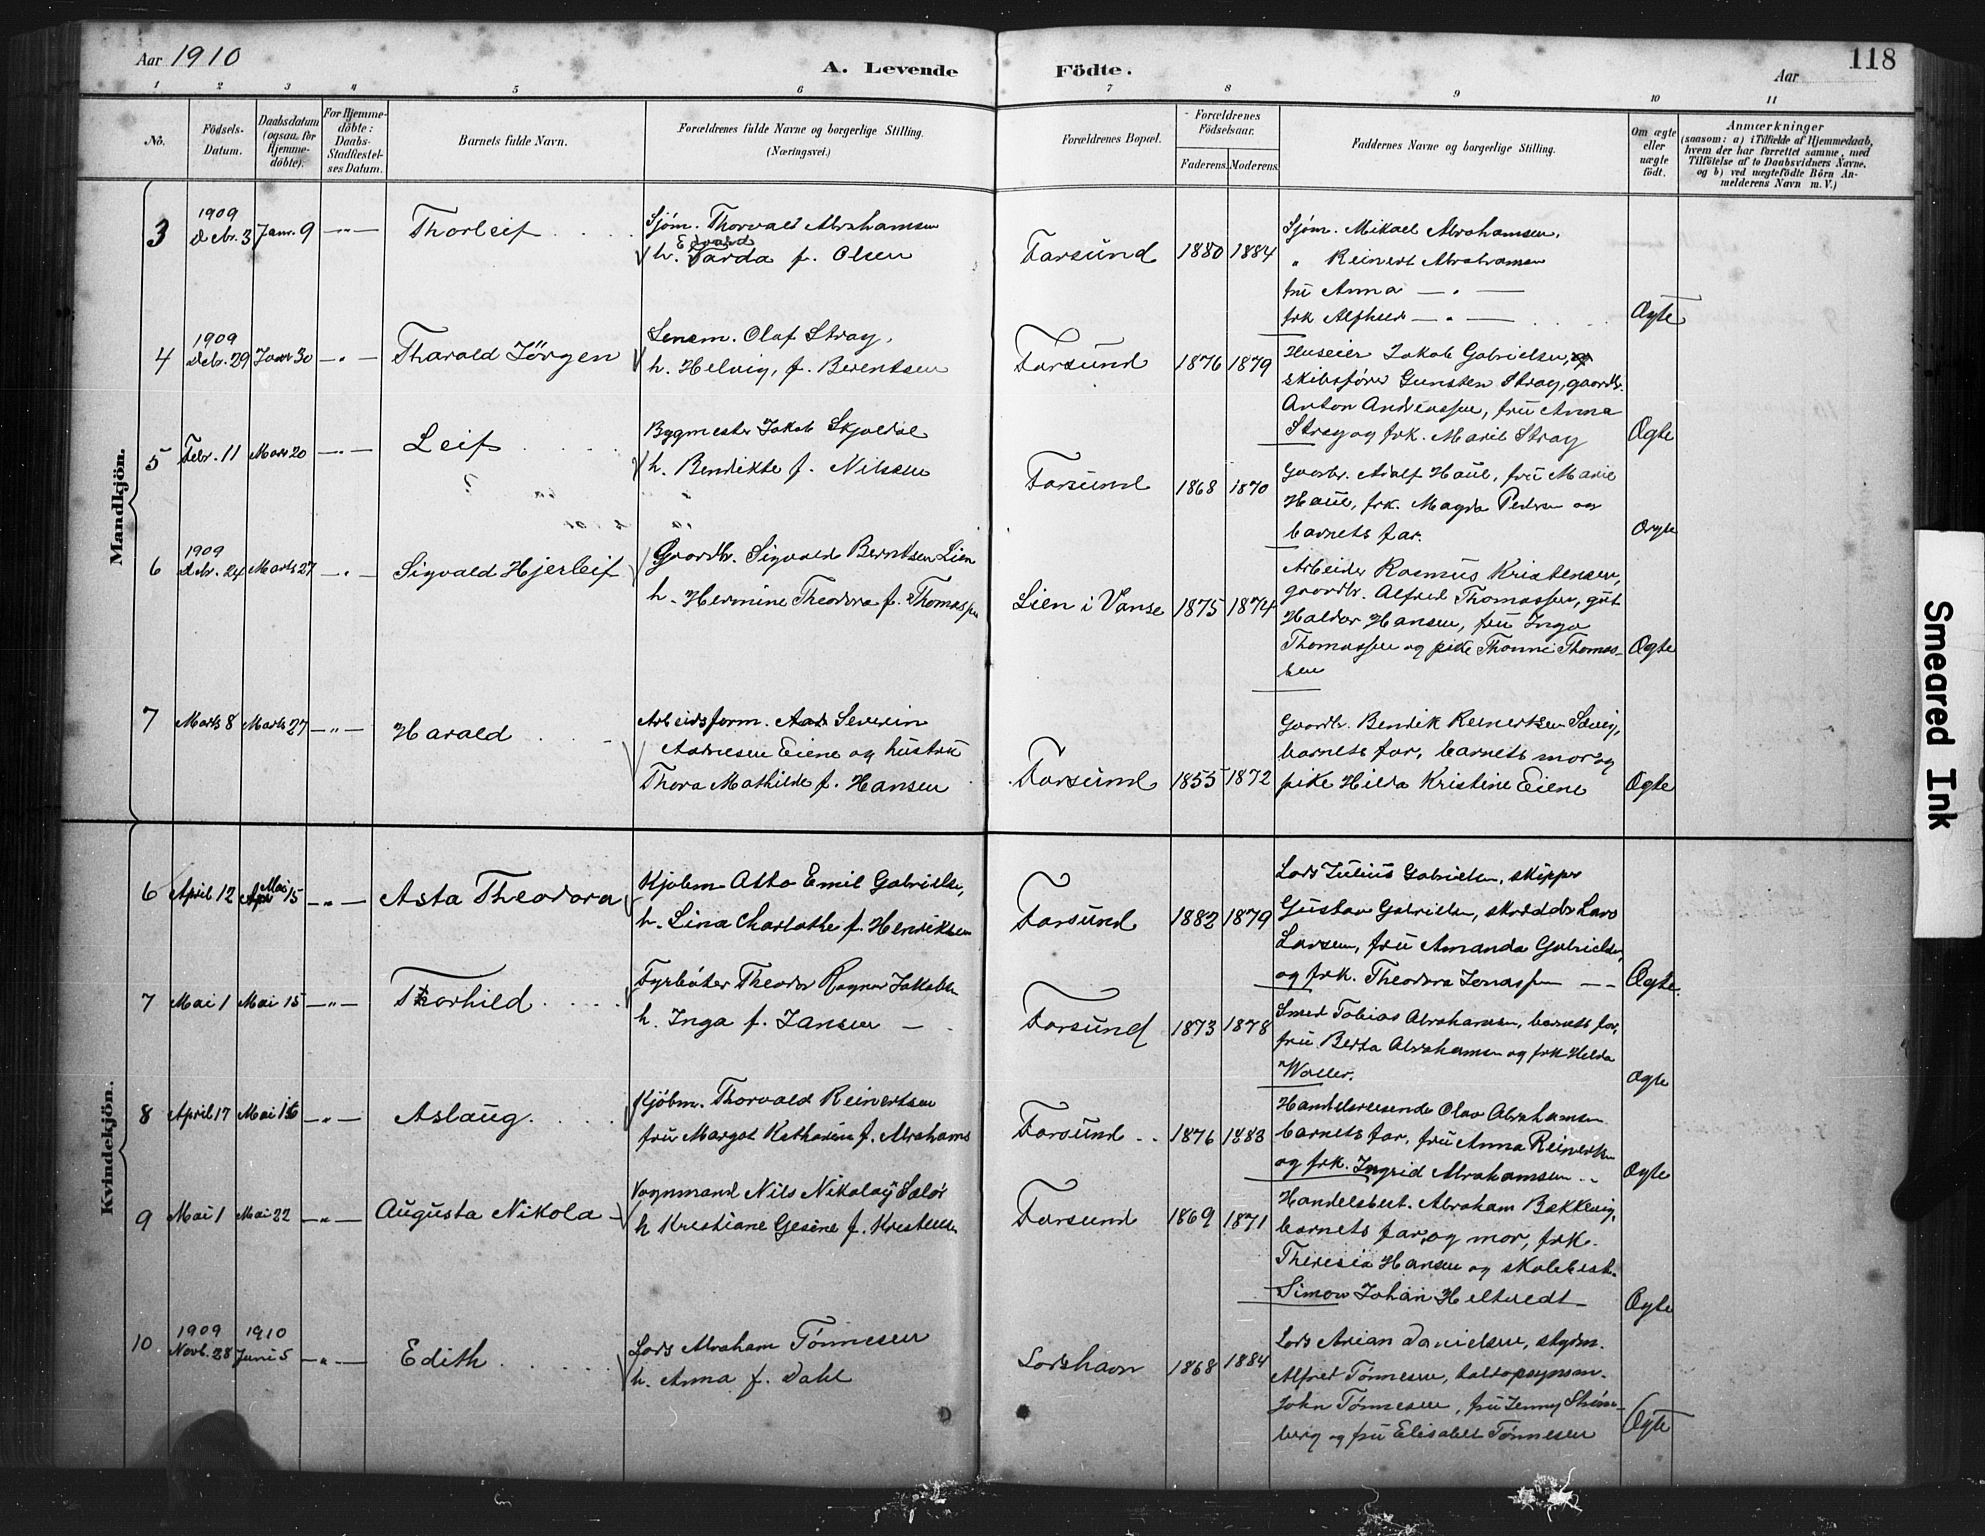 Aar 1910
A. Levende Födte.
Aar
118
1 2 3 4 5 6 7 8 9 10 11
No.
Födsels-Datum.
Daabsdatum (ogsaa for Hjemme-döbte).
For Hjemme-döbte: Daabs-Stadfæstel-ses Datum.
Barnets fulde Navn.
Forældrenes fulde Navne og borgerlige Stilling.
(Næringsvei.)
Forældrenes Bopæl.
Forældrenes Födselsaar.
Faderens. Moderens.
Faddernes Navne og borgerlige Stilling.
Om ægte eller uægte födt.
Anmærkninger
(saasom: a) i Tilfælde af Hjemmedaab,
hvem der har forrettet samme, med
Tilföielse af to Daabsvidners Navne,
og b) ved uægtefödte Börn An-
melderens Navn m. V.)
Mandkjön.
3 1909 Debr. 3 Janr. 9 — " — Thorleif
Sjøm. Thorvald Abrahamsen
h. Edvarda f. Olsen
Farsund 1880 1884
Sjøm. Mikael Abrahamsen,
" Reinert Abrahamsen
fru Anna — " —
frk Alfhild — " —
Ægte
4 1909 Debr. 29 Janr 30 — " — Tharald Jörgen
Olaf Stray,
h. Helvig, f. Berentsen
Farsund 1876 1879
Huseier Jakob Gabrielsen,
skibsförer Gunsten Stray, gaardbr.
Anton Andreassen, frü Anna
Stray og frk. Marie Stray
Ægte
5 Febr. 11 Mars 20 — " — Leif
Bygmester Jakob Skjoldal
h. Bendikte f. Nilsen
Farsund 1868 1870
Gaardbr. Adolf Haue, frü Marie
Haue, frk. Magda Pedersen og
barnets far.
Ægte
6 1909 Debr. 24 Marts 27 — " — Sigvald Hjerleif
Gaardbr. Sigvald Berntsen Lien
h. Hermine Theodora f. Thomassen
Lien i Vanse 1875 1874
Arbeider Rasmus Kristensen,
gaardbr. Alfred Thomassen, gut
Haldor Hansen, frü Inga
Thomassen og pike Thomine Thomas-
sen
Ægte
7 Marts 8 Marts 27 — " — Harald
Arbeidsform. Severin
Aarnesen Eiene og hüstrü
Thora Mathilde f. Hansen
Farsund 1855 1872
Gaardbr. Bendik Reinertsen
barnets far, barnets mor og
pike Hilda Kristine Eiene
Ægte
Kvindekjön.
6 April 12 Mai 15 — " — Asta Theodora
Kjøbm Otto Emil Gabrielsen,
h. Lina Charlotte f. Henriksen
Farsund 1882 1879
Lods Julius Gabrielsen, skipper
Gustav Gabrielsen, skrædder Lars
Larsen, frü Amanda Gabrielsen,
og frk. Theodora Jonassen
Ægte
7 Mai 1 Mai 15 — " — Thorhild
Fyrbøter Theodor Ragnar Jakobsen
h. Inga f. Jansen
Farsund 1873 1878
Smed Tobias Abrahamsen, barnets far,
frü Berta Abrahamsen og frk Hilda
Waller.
Ægte
8 April 17 Mai 16 — " — Aslaüg.
Kjöbm. Thorvald Reinertsen
frü Margot Katharine f. Abrahams
Farsund 1876 1883
Handelsreisende Olav Abrahamsen
barnets far, frü Anna Reinertsen
og frk. Ingrid Abrahamsen
Ægte
9 Mai 1 Mai 22 — " — Augusta Nikola
Vognmand Nils Nikolay Salör
h Kristiane Gesine f. Kristensen
Farsund 1869 1871
Handelsbest. Abraham Bækkevig,
barnets far, og mor, frk.
Theresia Hansen og skolebest.
Simon Johan Heltvedt
Ægte
10 1909 Novb. 28 1910 Juni 5 — " — Edith
Lods Abraham Tönnesen
h. Anna f. Dahl
Lodshavn 1868 1884
Lods Arian Danielsen,
Alfred Tönnesen, toldopsynsm.
John Tönnesen, frü Jenny Strøm-
berg og frü Elisabet Tönnesen
Ægte
Smeared Ink